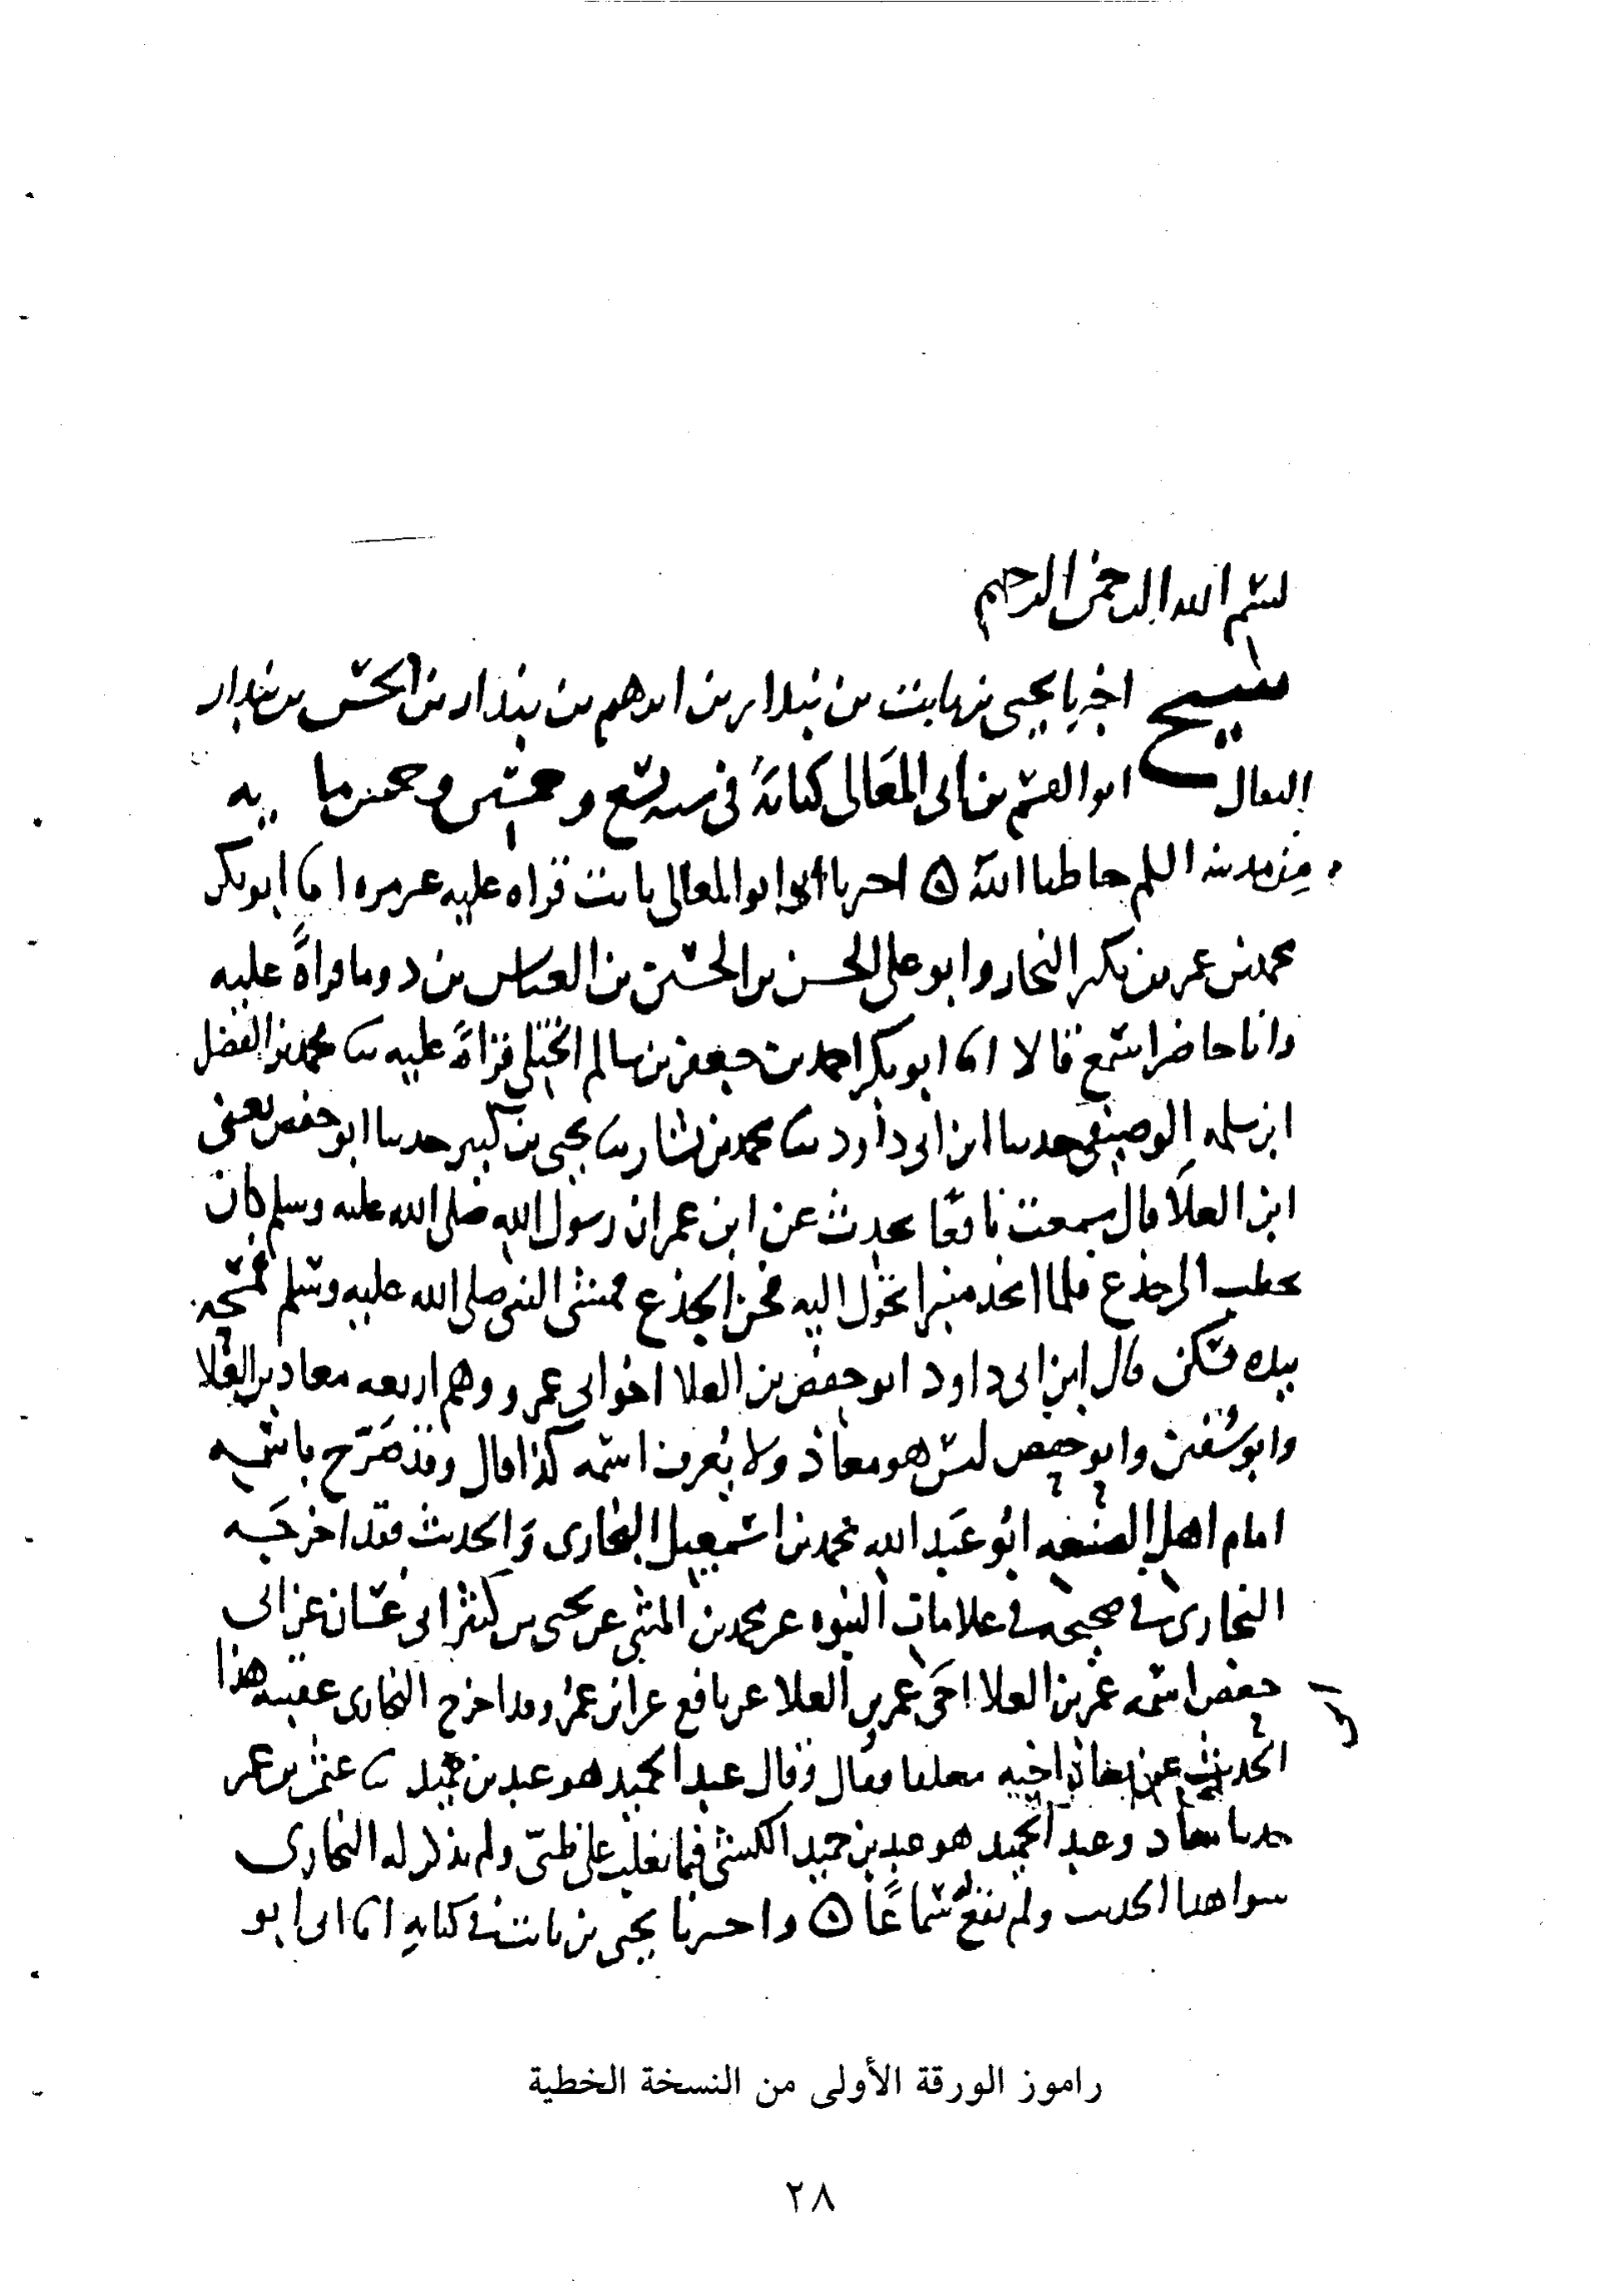 بسم الله الرحمن الرحيم
شيخ اخبرنا يحيى بن ثابت بن بندار بن ابرهيم بن بندار بن الحسن بن بندار
البقال ابو القسم بن ابي المعالي كتابة في سنه تسع وخمسين وخمس مايه
من مدينه السلم حاطها الله ه اخبرنا ابي ابو المعالي ثابت قراه عليه غير مره انا ابو بكر
محمد بن عمر بن بكير النجار وابو على الحسن بن الحسين بن العباس بن دوما قراةً عليه
وانا حاضر اسمع قالا انا ابو بكر احمد بن جعفر بن سالم الختلي قراةً عليه ثنا محمد بن الفضل
ابن سلمه الوصيفي حدثنا ابن ابي داود ثنا محمد بن بشار ثنا يحيى بن كثير حدثنا ابو حفص يعني
ابن العلا قال سمعت نافعًا يحدث عن ابن عمر ان رسول الله صلى الله عليه وسلم كان
يخطب الى جذع فلما اتخذ منبرا تحول اليه فحن الجذع فمشى النبي صلى الله عليه وسلم فمسحه
بيده فسكن قال ابن ابي داود ابو حفص بن العلا اخو ابي عمرو وهم اربعه معاذ بن العلا
وابو سفين وابو حفص ليس هو معاذ ولا يُعرف اسمه كذا قال وقد صَرّح باسمه
امام اهل الصنعه ابُو عَبد الله محمد بن اسمعيل البخارى وَالحديث فقد اخرجَه
البخارى في صحيحه في علامات النبوه عن محمد بن المثنى عن يحيى بن كثير ابي غسان عن ابي
حفص اسمه عمر بن العلا اخي عمر بن العلا عن نافع عن ابن عمر وقد اخرج البخارى عقيبه هذا
الحديث عن معاذ اخيه معلقا فقال وقال عبد الحميد هو عبد بن حميد ثنا عثمن بن عمر
حدثنا معاذ وعبد الحميد هو عبد بن حميد الكشي فيما يغلب على ظني ولم يذكر له البخارى
سوا هذا الحديث ولم يقع له سَماعًا ه واخبرنا يحيى بن ثابت في كتابه انا ابي ابو
راموز الورقة الأولى من النسخة الخطية
٢٨